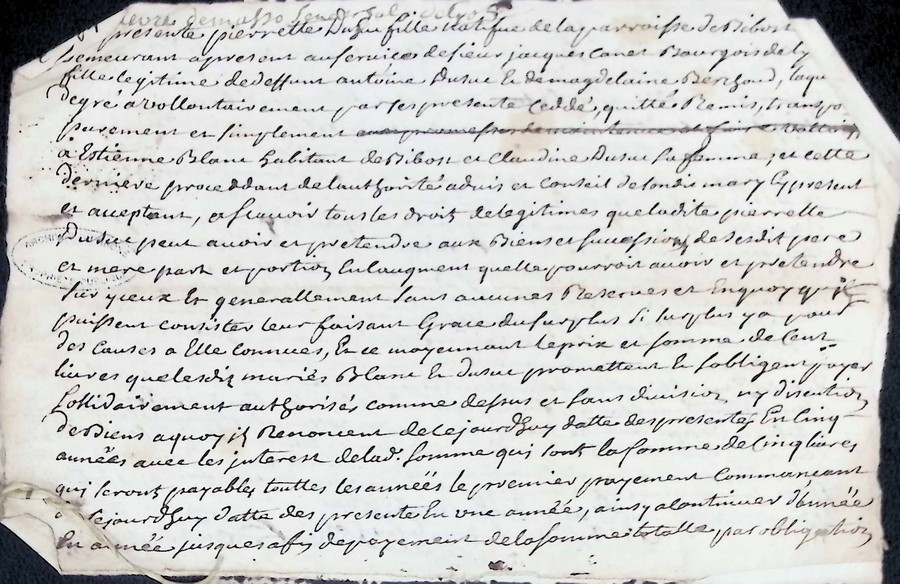 presente pierrette Dusuc fille natifue de la parroisse de Bibost
demeurant a present au service de sieur jacques Canet Bourgois de ly
fille legitime de deffunt antoine Dusuc Et de magdelaine Berthoud, laqu
degré a vollontairement par ses presente Ceddé, quitté Remis, transpo
purement et simplement
a Estienne Blanc habitant de Bibost et Claudine Dusuc sa femme; et cette
derniere proceddant de lauthorité aduis et Conseil de sondit mary Cy present
et acceptant, asscavoir tous les droit de legitimes que ladite pierrette
Dusuc peut auoir et pretendre aux Biens et succession de sesdit pere
et mere part et portion Enlaugment quelle pourroit auoir et pretendre
sur yceux Et generallement sans aucunes Reserves et Enquoy quil
puissent consister leur faisant Grace du surplus si surplus y a pour
des Causes a Elle Connues, Et ce moyennant le prix et somme de Cent
livres que lesdit mariés Blanc Et dusuc promettent Et sobligent payer
sollidairement authorisés comme dessus et sans division, ny discution
de Biens a quoy ils Renoncent de Cejourdhuy datte des presentes En Cinq
années auec les interest de lad. somme qui sont la somme de Cinq livres
qui seront payables touttes les années le premier payement Commançant
de Cejourdhuy datte des presente En une année, ainsy a Continuer dannée
En année jusques a fin de payement de la somme totalle par obligation